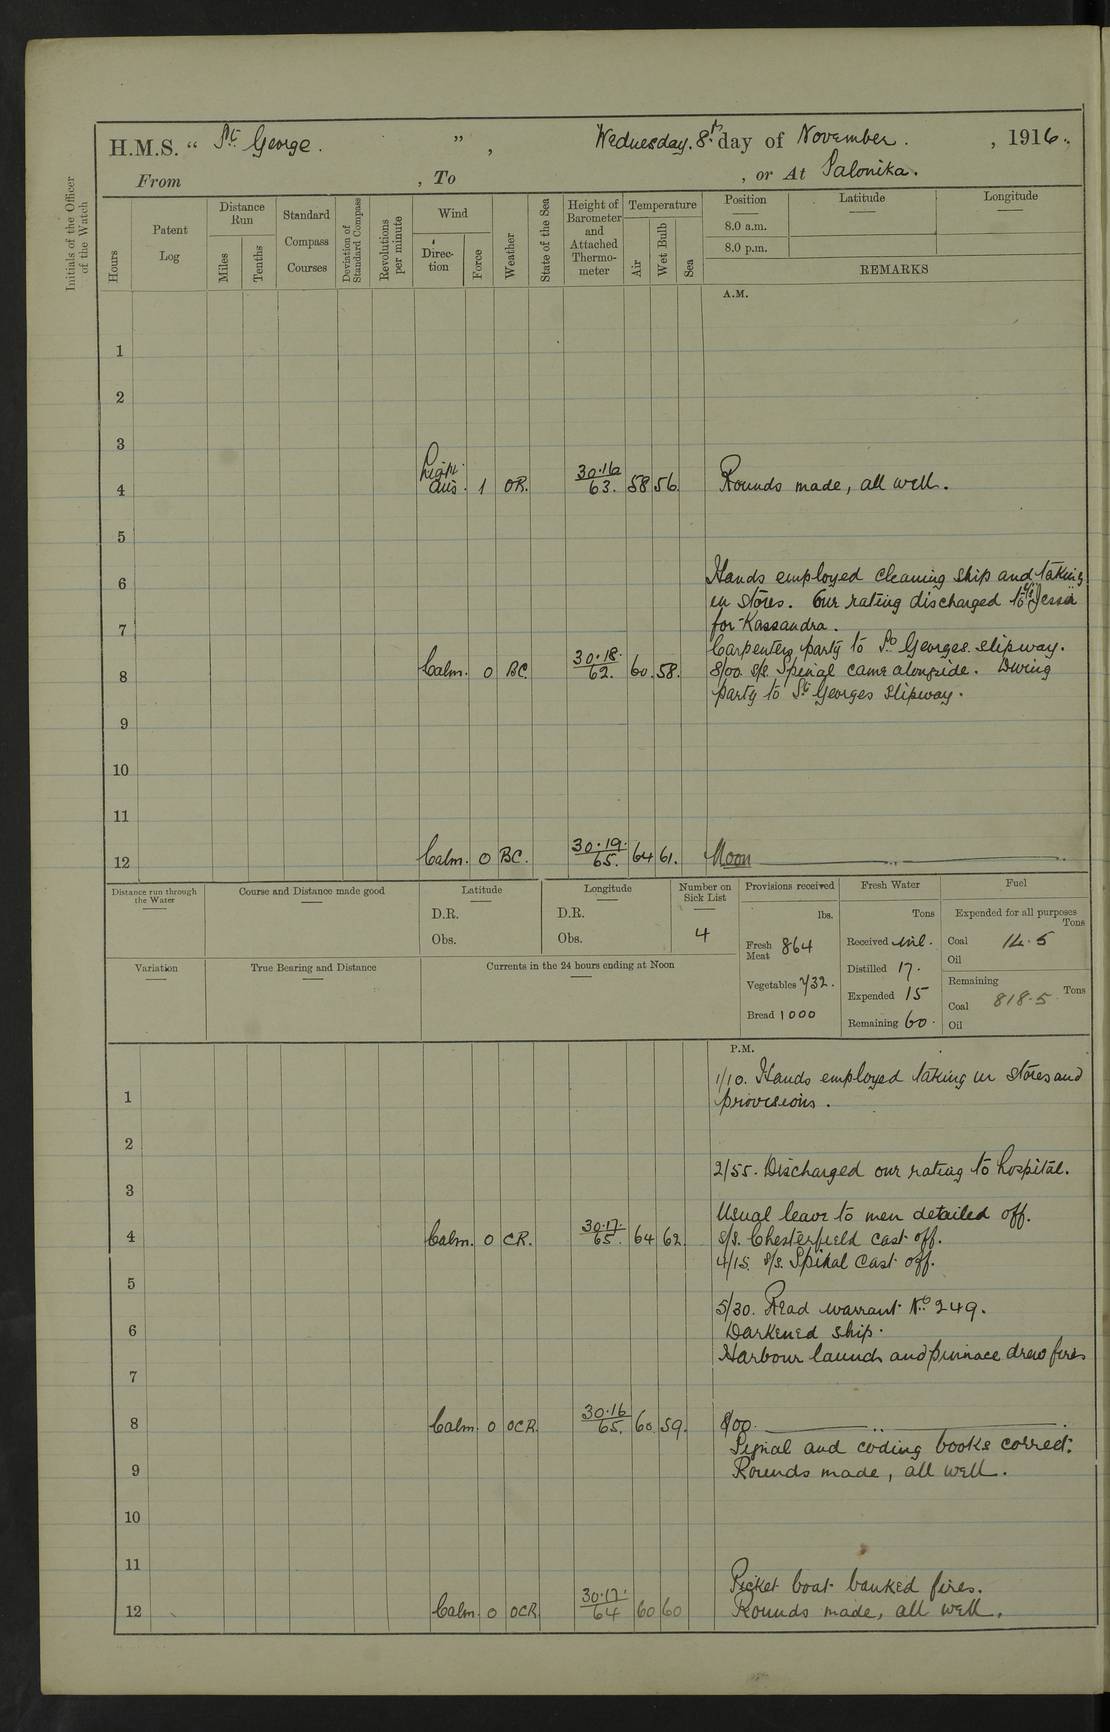 H.M.S. “ St. George. ”, Wednesday. 8th day of November. , 1916.
From , To , or At Salonika.
Initials of the Officer of the Watch
Hours
Patent Log
Distance Run
Miles
Tenths
Standard Compass Courses
Deviation of Standard Compass
Revolutions per minute
Wind
Direction
Force
Weather
State of the Sea
Height of Barometer and Attached Thermometer
Temperature
Air
Wet Bulb
Sea
Position
Latitude
Longitude
8.0 a.m.
8.0 p.m.
REMARKS
A.M.
1
2
3
4 Light airs. 1 OR. 30.16 63. 58 56. Rounds made, all well.
5
6 Hands employed cleaning ship and taking
in stores. One rating discharged to
7 for Kassandra.
Carpenters party to St Georges slipway.
8 Calm. 0 BC. 30.18. 62. 60. 58. 8/00 S/S came alongside. Diving
party to St Georges slipway.
9
10
11
12 Calm. 0 BC. 30.19. 65. 64 61. Noon
Distance run through the Water
Course and Distance made good
Latitude
D.R.
Obs.
Longitude
D.R.
Obs.
Number on Sick List
4
Provisions received
lbs.
Fresh Meat 864
Vegetables 432.
Bread 1000
Fresh Water
Tons
Received nil.
Distilled 17.
Expended 15
Remaining 60.
Fuel
Expended for all purposes
Tons
Coal 14.5
Oil
Remaining
Tons
Coal 818.5
Oil
Variation
True Bearing and Distance
Currents in the 24 hours ending at Noon
P.M.
1/10. Hands employed taking in stores and
1 provisions.
2
2/55. Discharged one rating to hospital.
3
Usual leave to men detailed off.
4 Calm. 0 CR. 30.17. 65. 64 62. S/S. Chesterfield cast off.
4/15. S/S. Spinal cast off.
5
5/30. Read warrant No 249.
6 Darkened ship.
Harbour launch and pinnace drew fires
7
8 Calm. 0 OCR. 30.16 65. 60. 59. 8/00.
Signal and coding books correct.
9 Rounds made, all well.
10
11
Picket boat banked fires.
12 Calm. 0 OCR. 30.17. 64 60 60 Rounds made, all well.